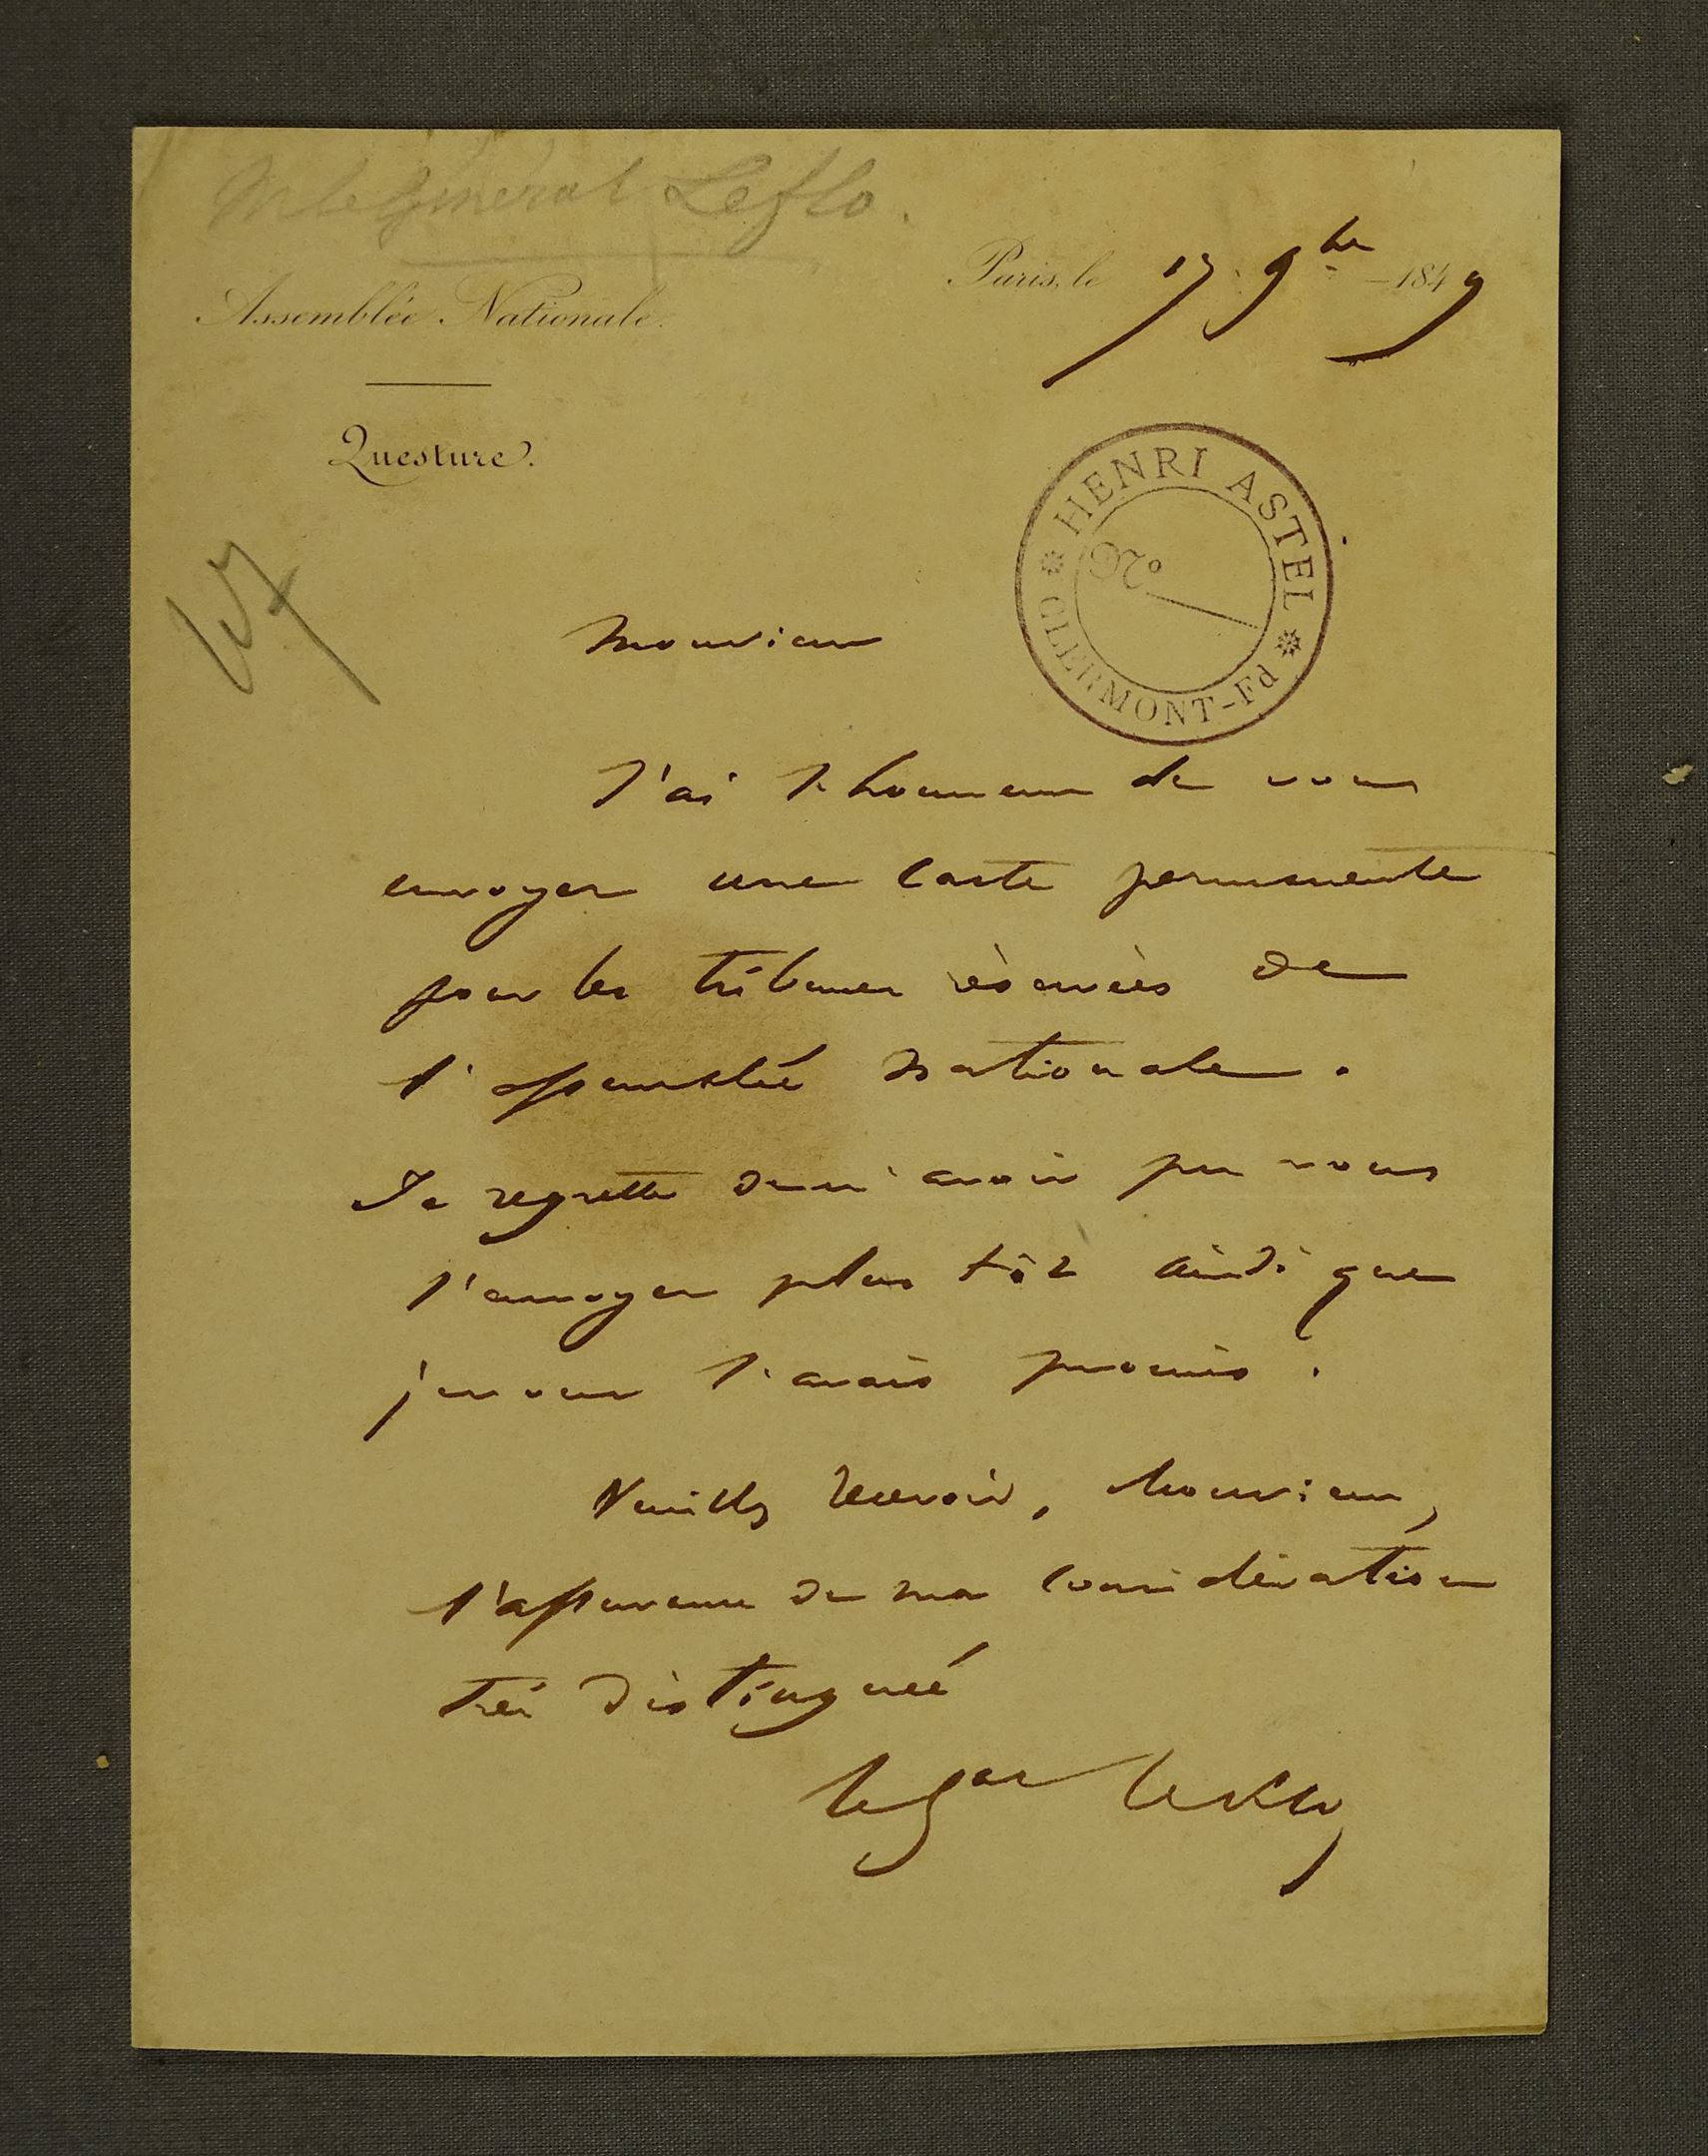 M le Général Leflo.
Assemblée Nationale.
Questure.
Paris, le 17 9bre 1849
HENRI ASTEL
CLERMONT-Fd
No
Monsieur
J'ai l'honneur de vous
envoyer une carte permanente
pour les tribunes réservées de
l'assemblée nationale.
Je regrette de n'avoir pu vous
l'envoyer plus tôt ainsi que
je vous l'avais promis.
Veuillez recevoir, Monsieur,
l'assurance de ma considération
très distinguée
le gal Le Flo